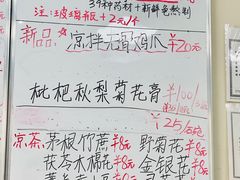 39种药材+新鲜龟熬制
注:玻璃瓶+2元/个
新品:凉拌无骨鸡爪 ¥20元
枇杷秋梨菊花膏 ¥100/
¥25/
凉茶:茅根竹蔗¥8元 野菊花¥8元
茯苓木棉花¥8元 金银花¥8